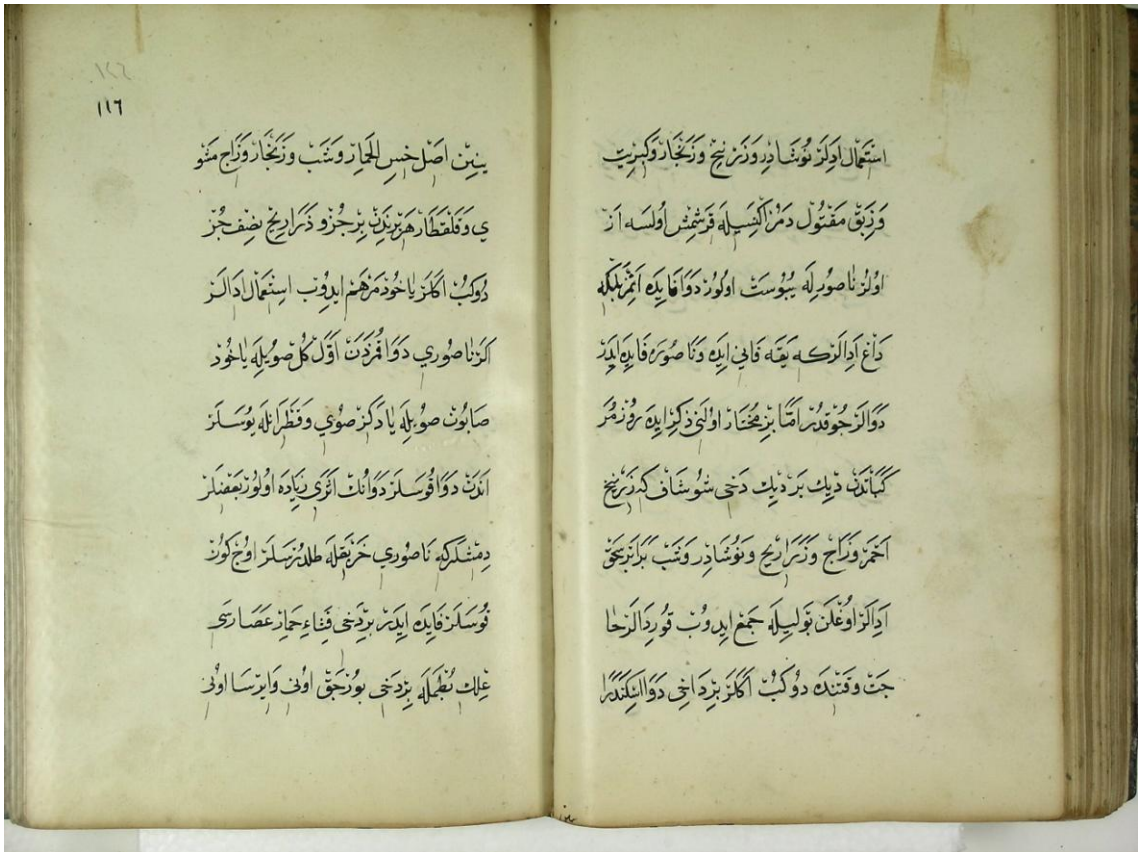 استعمال ادلر نوشادر وزرنيخ وزنجار وكبريت
وزيبق مقتول دمر اكنسيله قرشمش اولسه از
اولر ناصورله يبوست اولور دوا فايده اتمز بلكه
داغ ادالركه يقه قاني ايده وناصوره فايده ايدر
دوالر جوقدر اما بز مختار اولني ذكر ايده روز مر
كباتدن ديك بر ديك دخي شوشاف كه زرنيخ
احمر وزاج وزراريح ونوشادر وشب برابر سحق
ادالر اوغلن بوليله جمع ايدوب قوردالر حا
جت وقتنده دوكب اكلر بر داخي دوا اسكندرا
١١٦
ينين اصل خس الحمار وشب وزنجار وزاج مشو
ي وقلقطار هر برندن بر جزو ذراريح نصف جز
دوكب اكلر ياخود مرهم ايدوب استعمال ادالر
اكر ناصوري دوا قمزدن اول كل صويله ياخود
صابون صويله يا دكز صوي وقطرانله يوسلر
اندن دوا قوسلر دوانك اثري زياده اولور بعضلر
دمشلركه ناصوري خربقله طلدرسلر اوج كون
قوسلر فايده ايدر بر دخي قثاء حمار عصارسى
علك بطمله بر دخي بورجق اوني وايرسا اوني